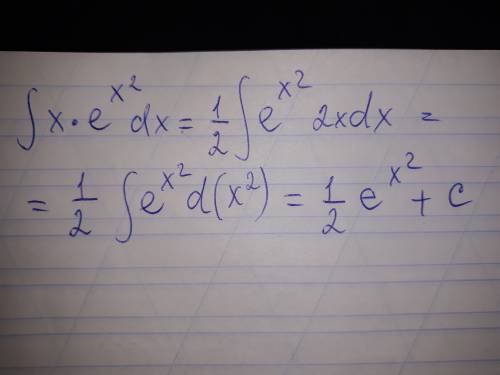 ∫ x · e^{x^2} dx = \frac{1}{2} ∫ e^{x^2} 2x dx =
= \frac{1}{2} ∫ e^{x^2} d(x^2) = \frac{1}{2} e^{x^2} + c